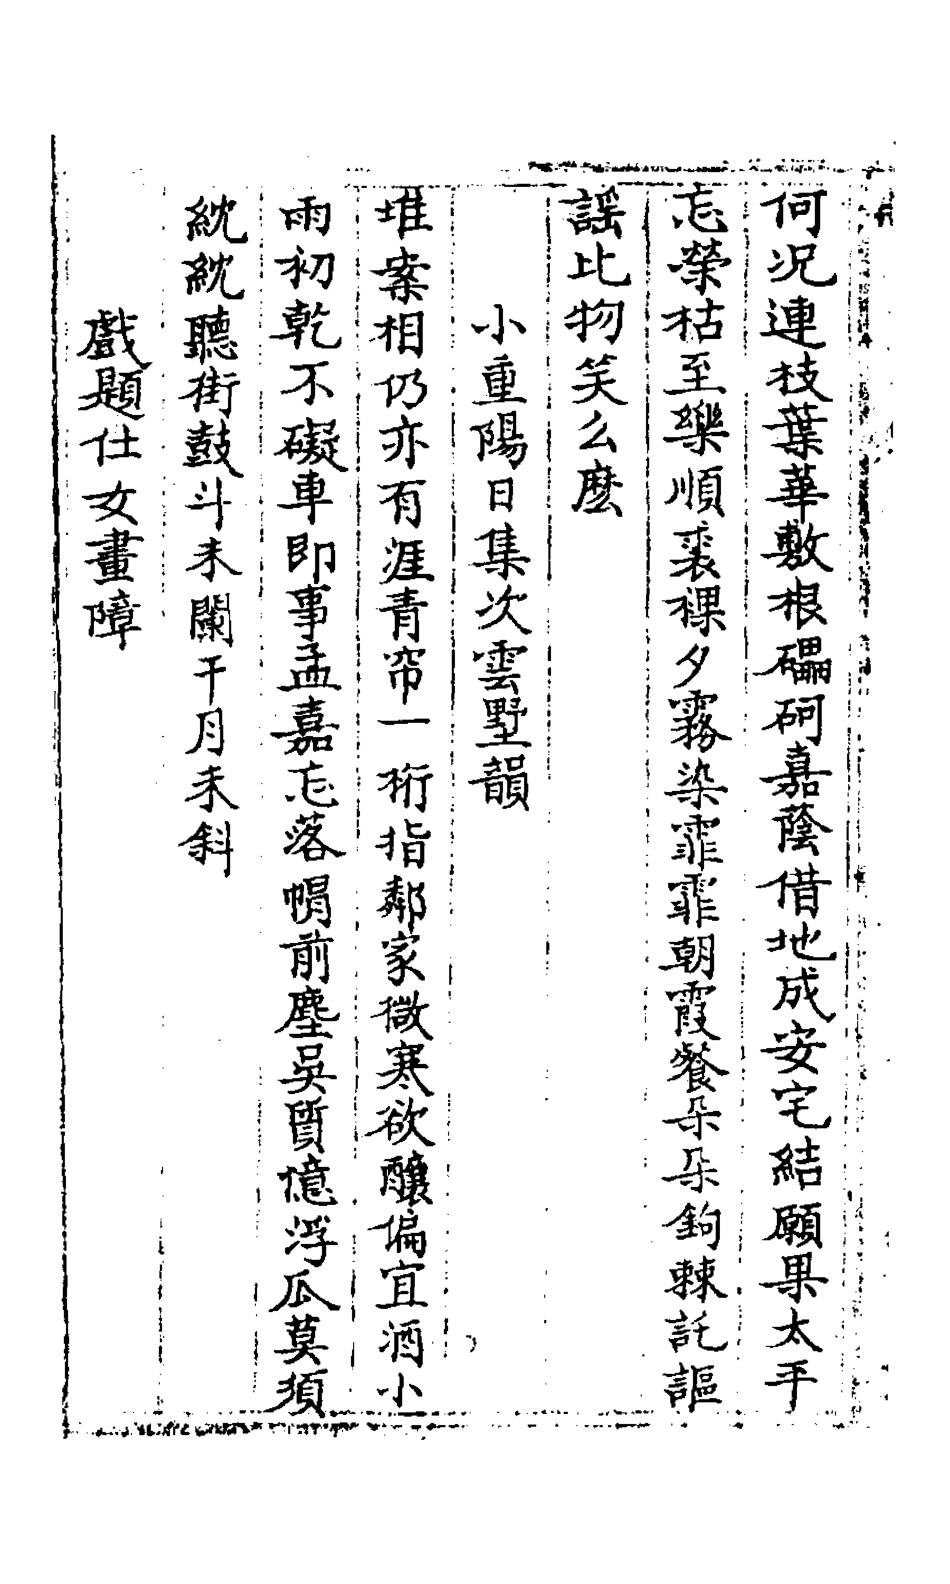 何况連枝葉華敷根礧砢嘉蔭借地成安宅結願果太平
忘榮枯至樂順裘裸夕霧染霏霏朝霞餐朵朵鉤棘託謳
謡比物笑么麼
小重陽日集次雲墅韻
堆案相仍亦有涯青帘一桁指鄰家微寒欲釀偏宜酒小
雨初乾不礙車即事孟嘉忘落帽前塵吳質憶浮瓜莫須
紞紞聽街鼓斗未闌干月未斜
戲題仕女畫障